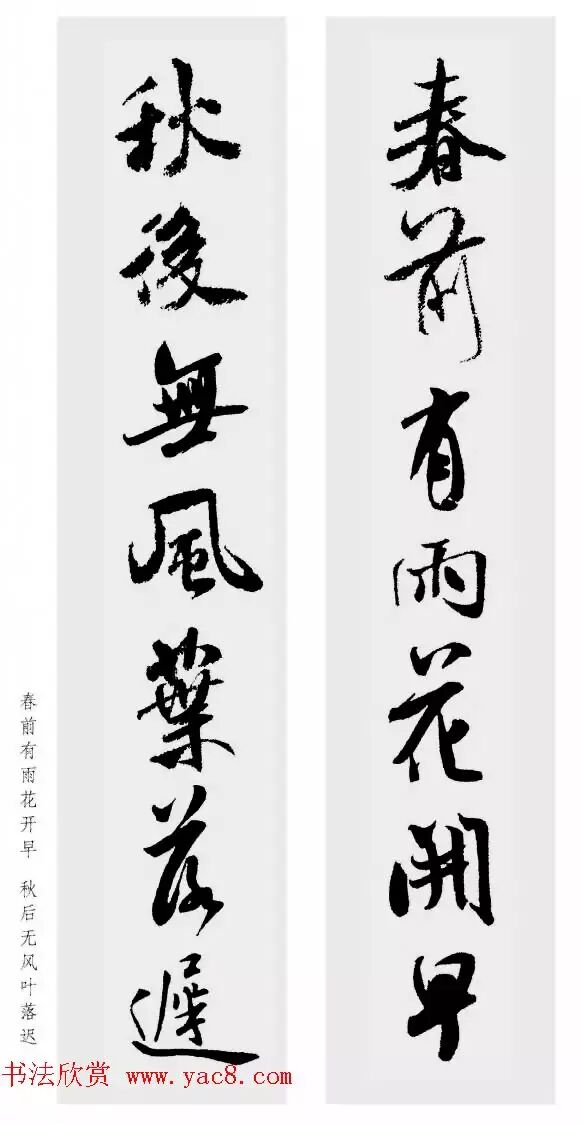 春前有雨花開早
秋後無風葉落遲
春前有雨花开早 秋后无风叶落迟
书法欣赏 www.yac8.com